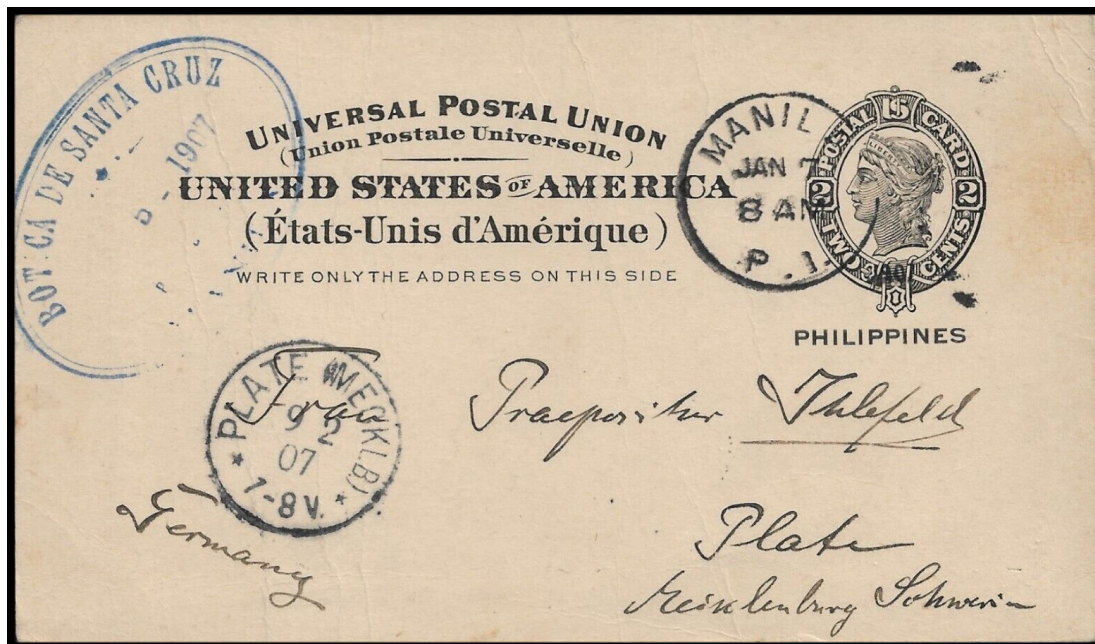 BOTICA DE SANTA CRUZ
1907
UNIVERSAL POSTAL UNION
(Union Postale Universelle)
UNITED STATES OF AMERICA
(États-Unis d'Amérique)
WRITE ONLY THE ADDRESS ON THIS SIDE
MANIL
JAN 7
8 AM
P. I.
POSTAL CARD
LIBERTY
2 2
TWO CENTS
PHILIPPINES
PLATE (MECKLB)
9 2
07
7-8 V.
Frau Praepositur Ihlefeld
Germany
Plate
Mecklenburg Schwerin